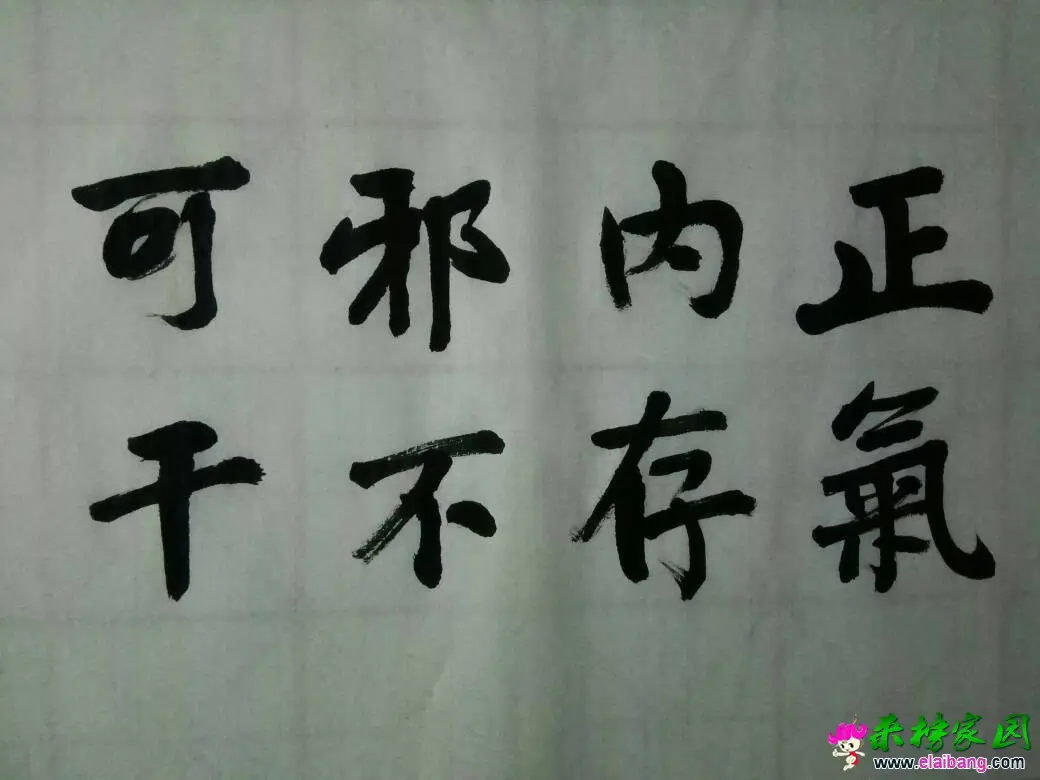 正氣
内存
邪不
可干
来榜家园
www.elaibang.com